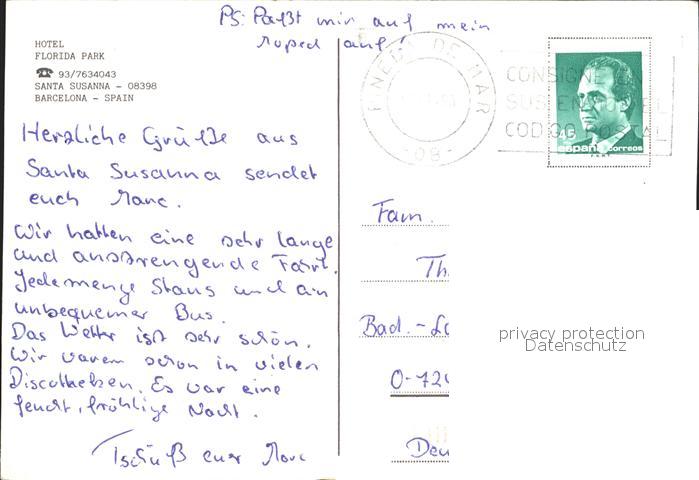 PS: Paßt mir auf mein
moped auf!
HOTEL
FLORIDA PARK
☎ 93/7634043
SANTA SUSANNA - 08398
BARCELONA - SPAIN
Herzliche Grüße aus
Santa Susanna sendet
euch Marc.
Wir hatten eine sehr lange
und anstrengende Fahrt.
Jedemenge Staus und ein
unbequemer Bus.
Das Wetter ist sehr schön.
Wir waren schon in vielen
Discotheken. Es war eine
feucht, fröhlige Nacht.
Tschüß euer Marc
PINEDA DE MAR
-08-
CONSIGNE EN
SUS ENVIOS EL
CODIGO POSTAL
45
españa correos
F.N.M.T.
Fam.
Th
Bad.-
O-72
Deu
privacy protection
Datenschutz